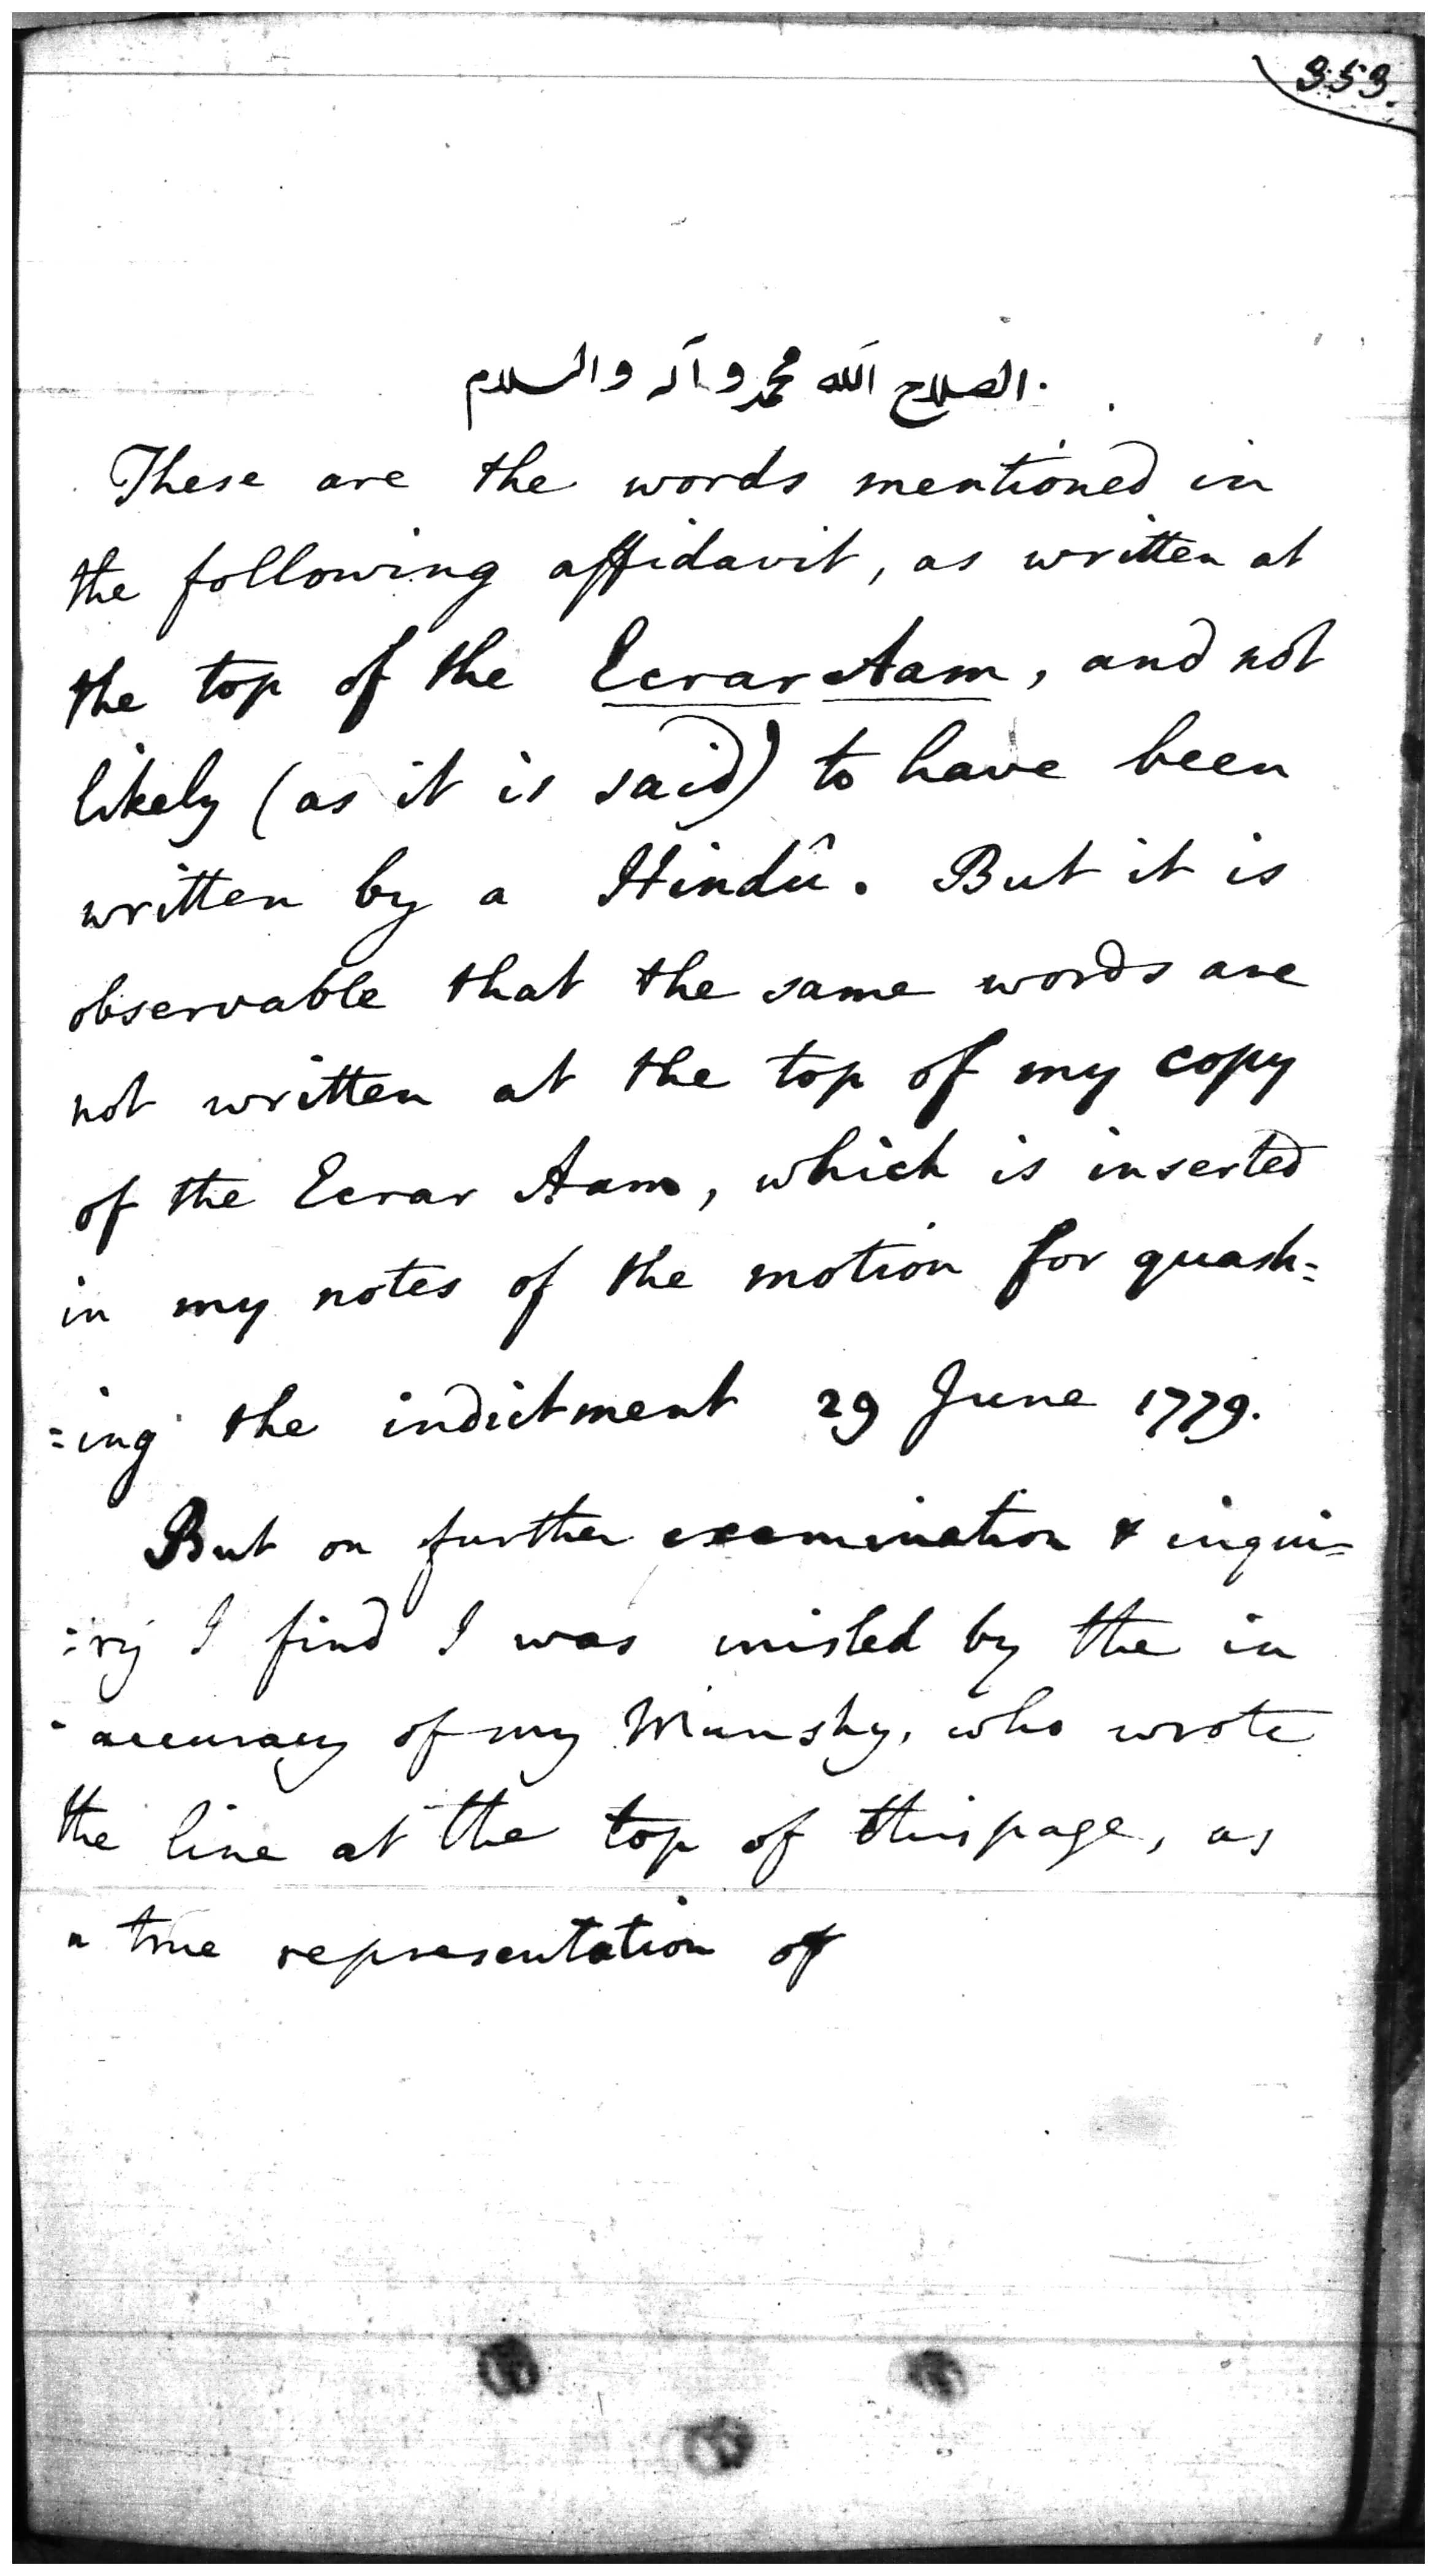 353.
الصلاح الله محمد وآله والسلام
These are the words mentioned in
the following affidavit, as written at
the top of the Ecrar Aam, and not
likely (as it is said) to have been
written by a Hindû. But it is
observable that the same words are
not written at the top of my copy
of the Ecrar Aam, which is inserted
in my notes of the motion for quash=
=ing the indictment 29 June 1779.
But on further examination & inqui=
=ry I find I was misled by the in
-accuracy of my Munshy, who wrote
the line at the top of this page, as
a true representation of